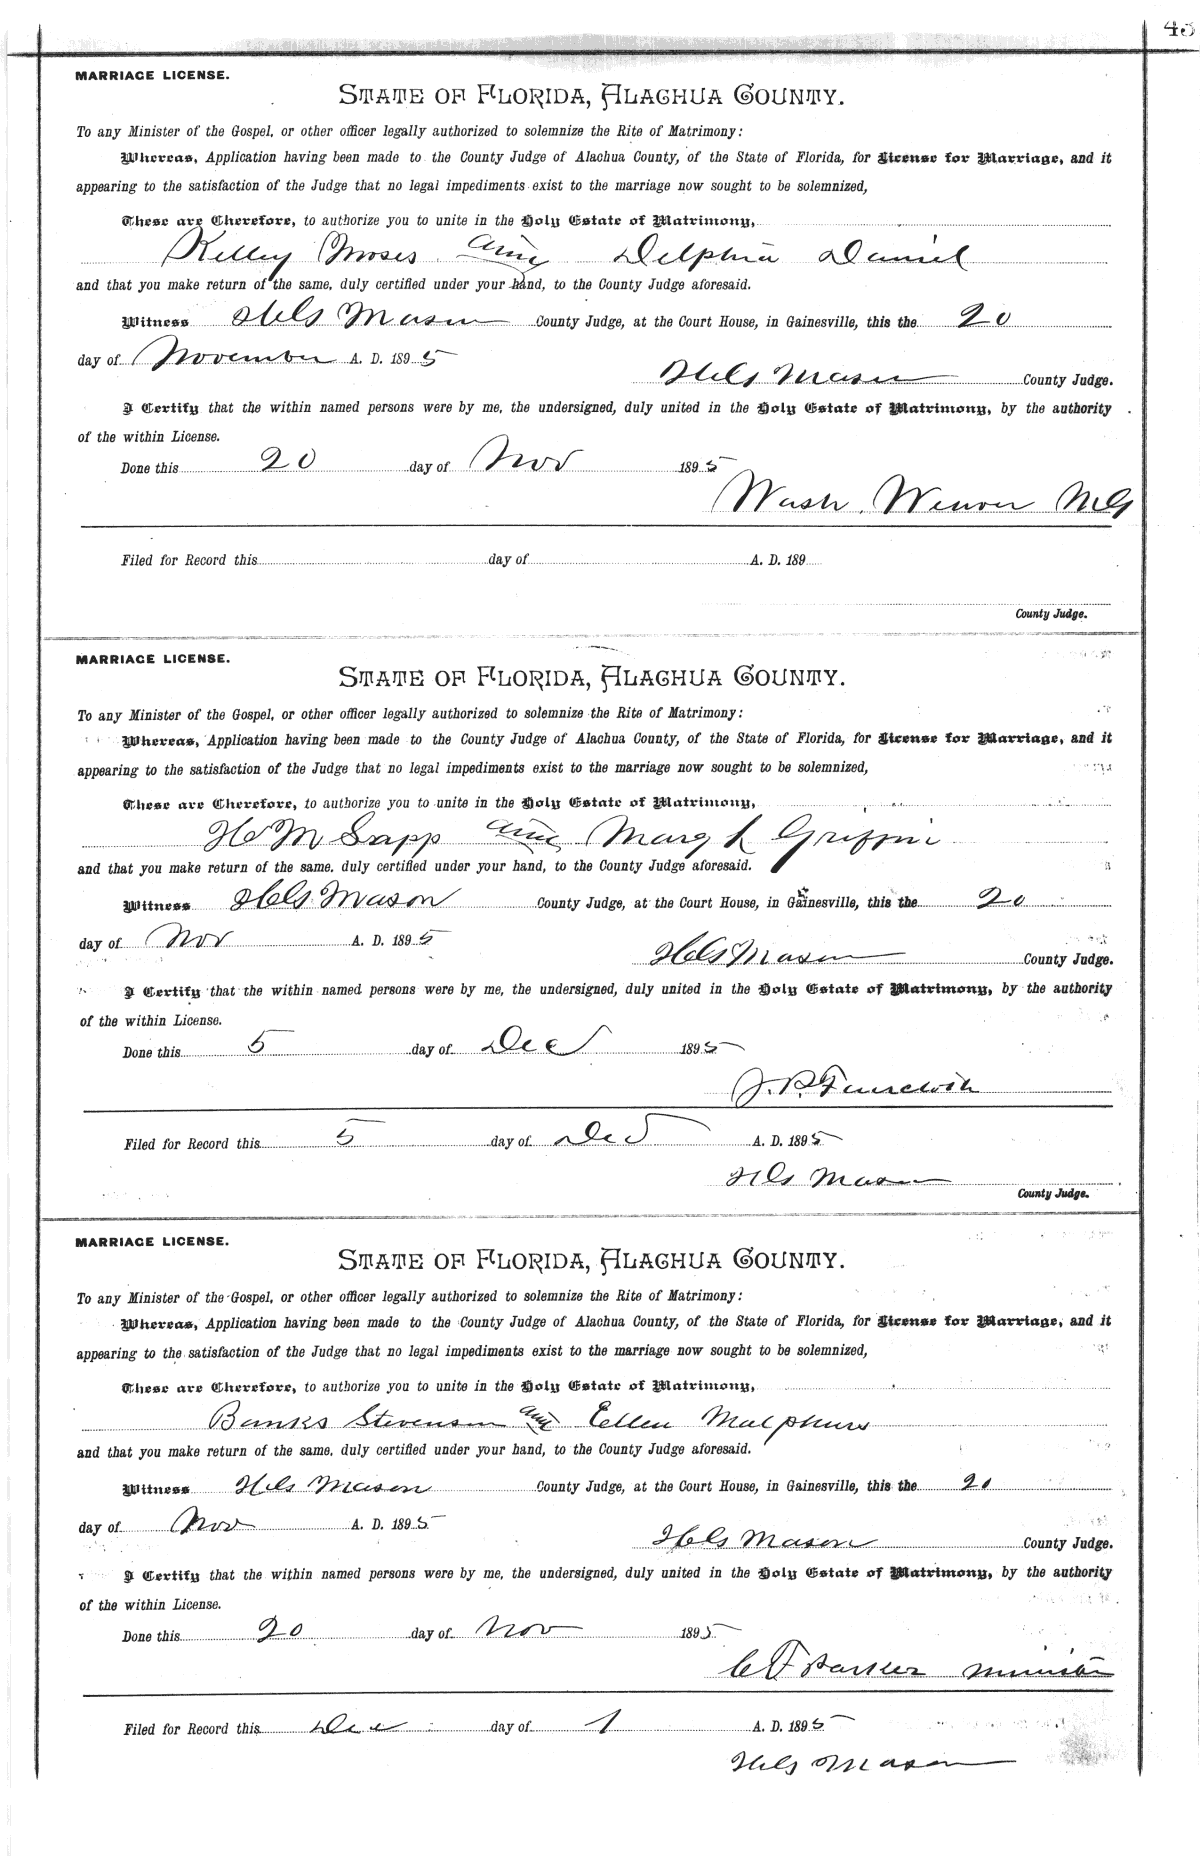 MARRIAGE LICENSE.
STATE OF FLORIDA, ALACHUA COUNTY.
To any Minister of the Gospel, or other officer legally authorized to solemnize the Rite of Matrimony:
Whereas, Application having been made to the County Judge of Alachua County, of the State of Florida, for License for Marriage, and it
appearing to the satisfaction of the Judge that no legal impediments exist to the marriage now sought to be solemnized,
These are Therefore, to authorize you to unite in the Holy Estate of Matrimony,
Kelley Moses and Delphia Daniel
and that you make return of the same, duly certified under your hand, to the County Judge aforesaid.
Witness Mason County Judge, at the Court House, in Gainesville, this the 20
day of November A. D. 1895
Mason County Judge.
I Certify that the within named persons were by me, the undersigned, duly united in the Holy Estate of Matrimony, by the authority
of the within License.
Done this 20 day of Nov 1895
Wash. Weaver MG
Filed for Record this day of A. D. 189
County Judge.
MARRIAGE LICENSE.
STATE OF FLORIDA, ALACHUA COUNTY.
To any Minister of the Gospel, or other officer legally authorized to solemnize the Rite of Matrimony:
Whereas, Application having been made to the County Judge of Alachua County, of the State of Florida, for License for Marriage, and it
appearing to the satisfaction of the Judge that no legal impediments exist to the marriage now sought to be solemnized,
These are Therefore, to authorize you to unite in the Holy Estate of Matrimony,
H M Sapp and Mary L Griffin
and that you make return of the same, duly certified under your hand, to the County Judge aforesaid.
Witness Mason County Judge, at the Court House, in Gainesville, this the 20
day of Nov A. D. 1895
Mason County Judge.
I Certify that the within named persons were by me, the undersigned, duly united in the Holy Estate of Matrimony, by the authority
of the within License.
Done this 5 day of Dec 1895
J. P.
Filed for Record this 5 day of Dec A. D. 1895
Mason
County Judge.
MARRIAGE LICENSE.
STATE OF FLORIDA, ALACHUA COUNTY.
To any Minister of the Gospel, or other officer legally authorized to solemnize the Rite of Matrimony:
Whereas, Application having been made to the County Judge of Alachua County, of the State of Florida, for License for Marriage, and it
appearing to the satisfaction of the Judge that no legal impediments exist to the marriage now sought to be solemnized,
These are Therefore, to authorize you to unite in the Holy Estate of Matrimony,
Banks Stevenson and Ellen Malphurs
and that you make return of the same, duly certified under your hand, to the County Judge aforesaid.
Witness Mason County Judge, at the Court House, in Gainesville, this the 20
day of Nov A. D. 1895
Mason County Judge.
I Certify that the within named persons were by me, the undersigned, duly united in the Holy Estate of Matrimony, by the authority
of the within License.
Done this 20 day of Nov 1895
C F Barker Minister
Filed for Record this Dec day of 1 A. D. 1895
Mason